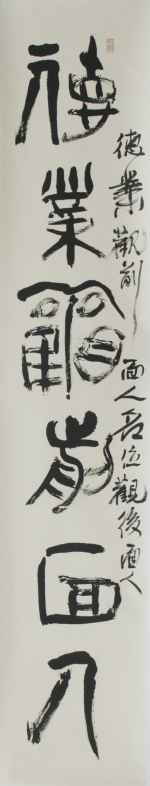 德業觀前面人
德業觀前面人名位觀後面人